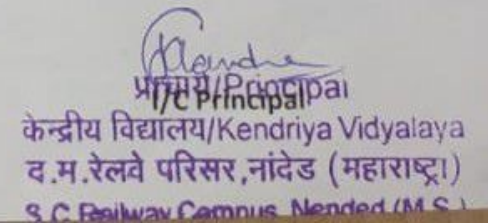 प्राचार्य/Principal
I/C Principal
केन्द्रीय विद्यालय/Kendriya Vidyalaya
द.म.रेलवे परिसर,नांदेड (महाराष्ट्र।)
S.C Railway Campus Nanded (M.S.)